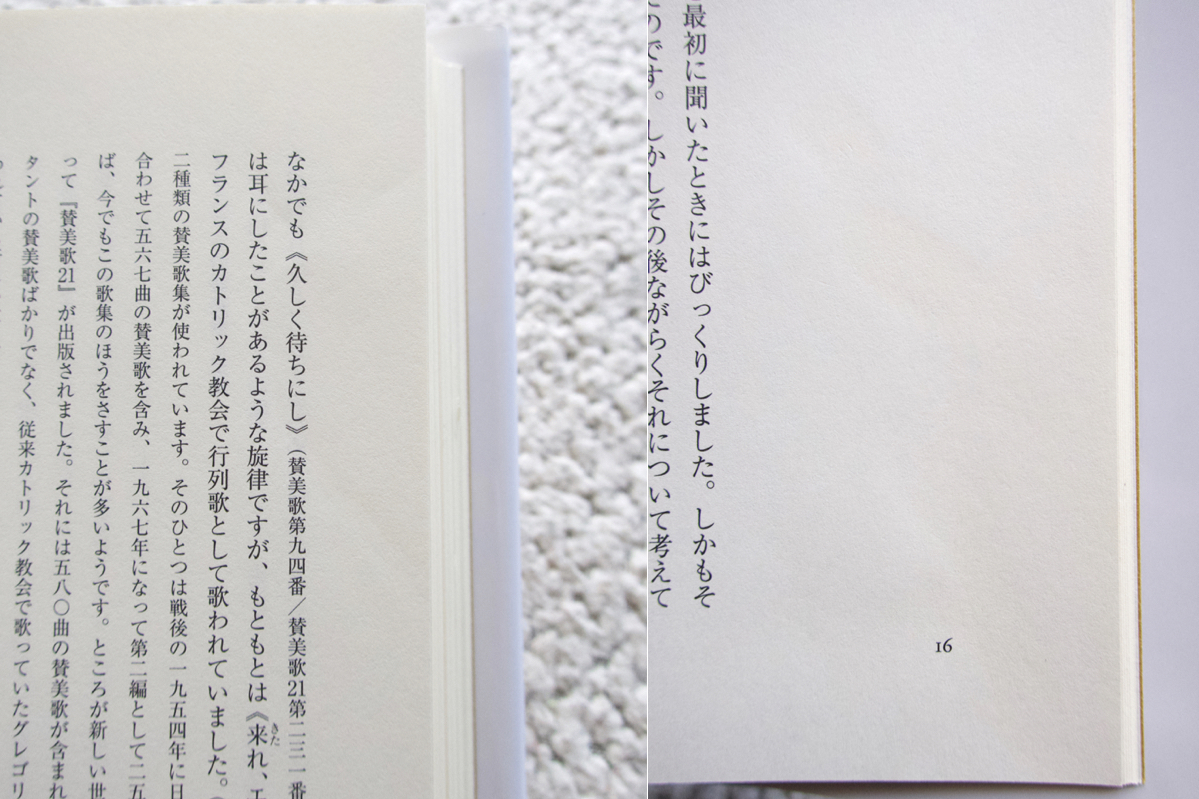 なかでも《久しく待ちにし》(賛美歌第九四番/賛美歌21第二三一番
は耳にしたことがあるような旋律ですが、もともとは《来れ、エ
きた
フランスのカトリック教会で行列歌として歌われていました。(
二種類の賛美歌集が使われています。そのひとつは戦後の一九五四年に日
合わせて五六七曲の賛美歌を含み、一九六七年になって第二編として二五
ば、今でもこの歌集のほうをさすことが多いようです。ところが新しい世
って『賛美歌21』が出版されました。それには五八〇曲の賛美歌が含まれ
タントの賛美歌ばかりでなく、従来カトリック教会で歌っていたグレゴリ
最初に聞いたときにはびっくりしました。しかもそ
のです。しかしその後ながらくそれについて考えて
16